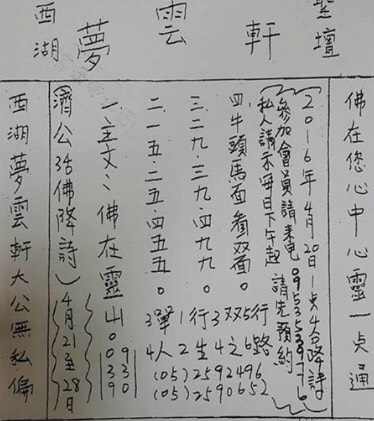 西湖夢雲軒聖壇
佛在您心中心靈一点通
2016年4月20日一点合路詩
參加會員請來电
私人請求每日下午起 請先預約
四牛頭馬面看双面。
三二九.三九.四九九。
二一五.二五.四五五。
一.主文:佛在靈山。
(濟公活佛降詩)4月21至28日
西湖夢雲軒大公無私偏
3單1行3双5行
4人2生4之6路
(05)2592496
(05)2590652